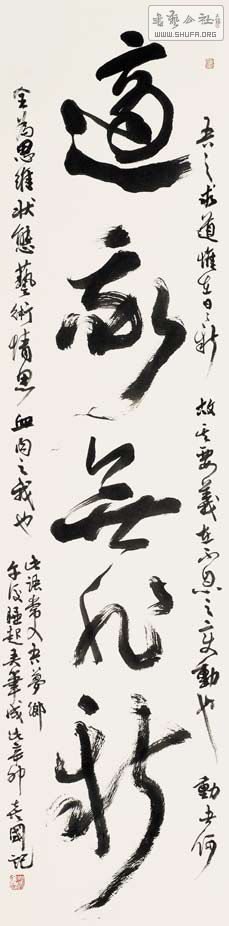 書藝公社
WWW.SHUFA.ORG
適我無非新
吾之求道惟在日々新 故其要義在不息之變動也 動者何
全為思維狀態藝術情思 血肉之我也
此語常入吾夢鄉
午後起筆成此辛卯 國記